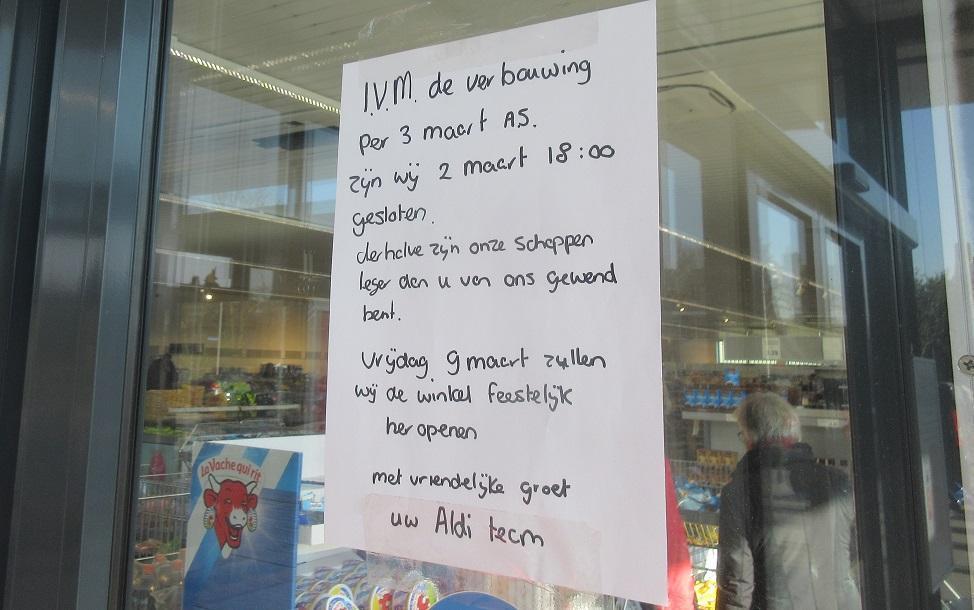 I.V.M. de verbouwing
per 3 maart AS.
zijn wij 2 maart 18:00
gesloten.
derhalve zijn onze schappen
leger dan u van ons gewend
bent.
Vrijdag 9 maart zullen
wij de winkel feestelijk
heropenen
met vriendelijke groet
uw Aldi team
La Vache qui rit